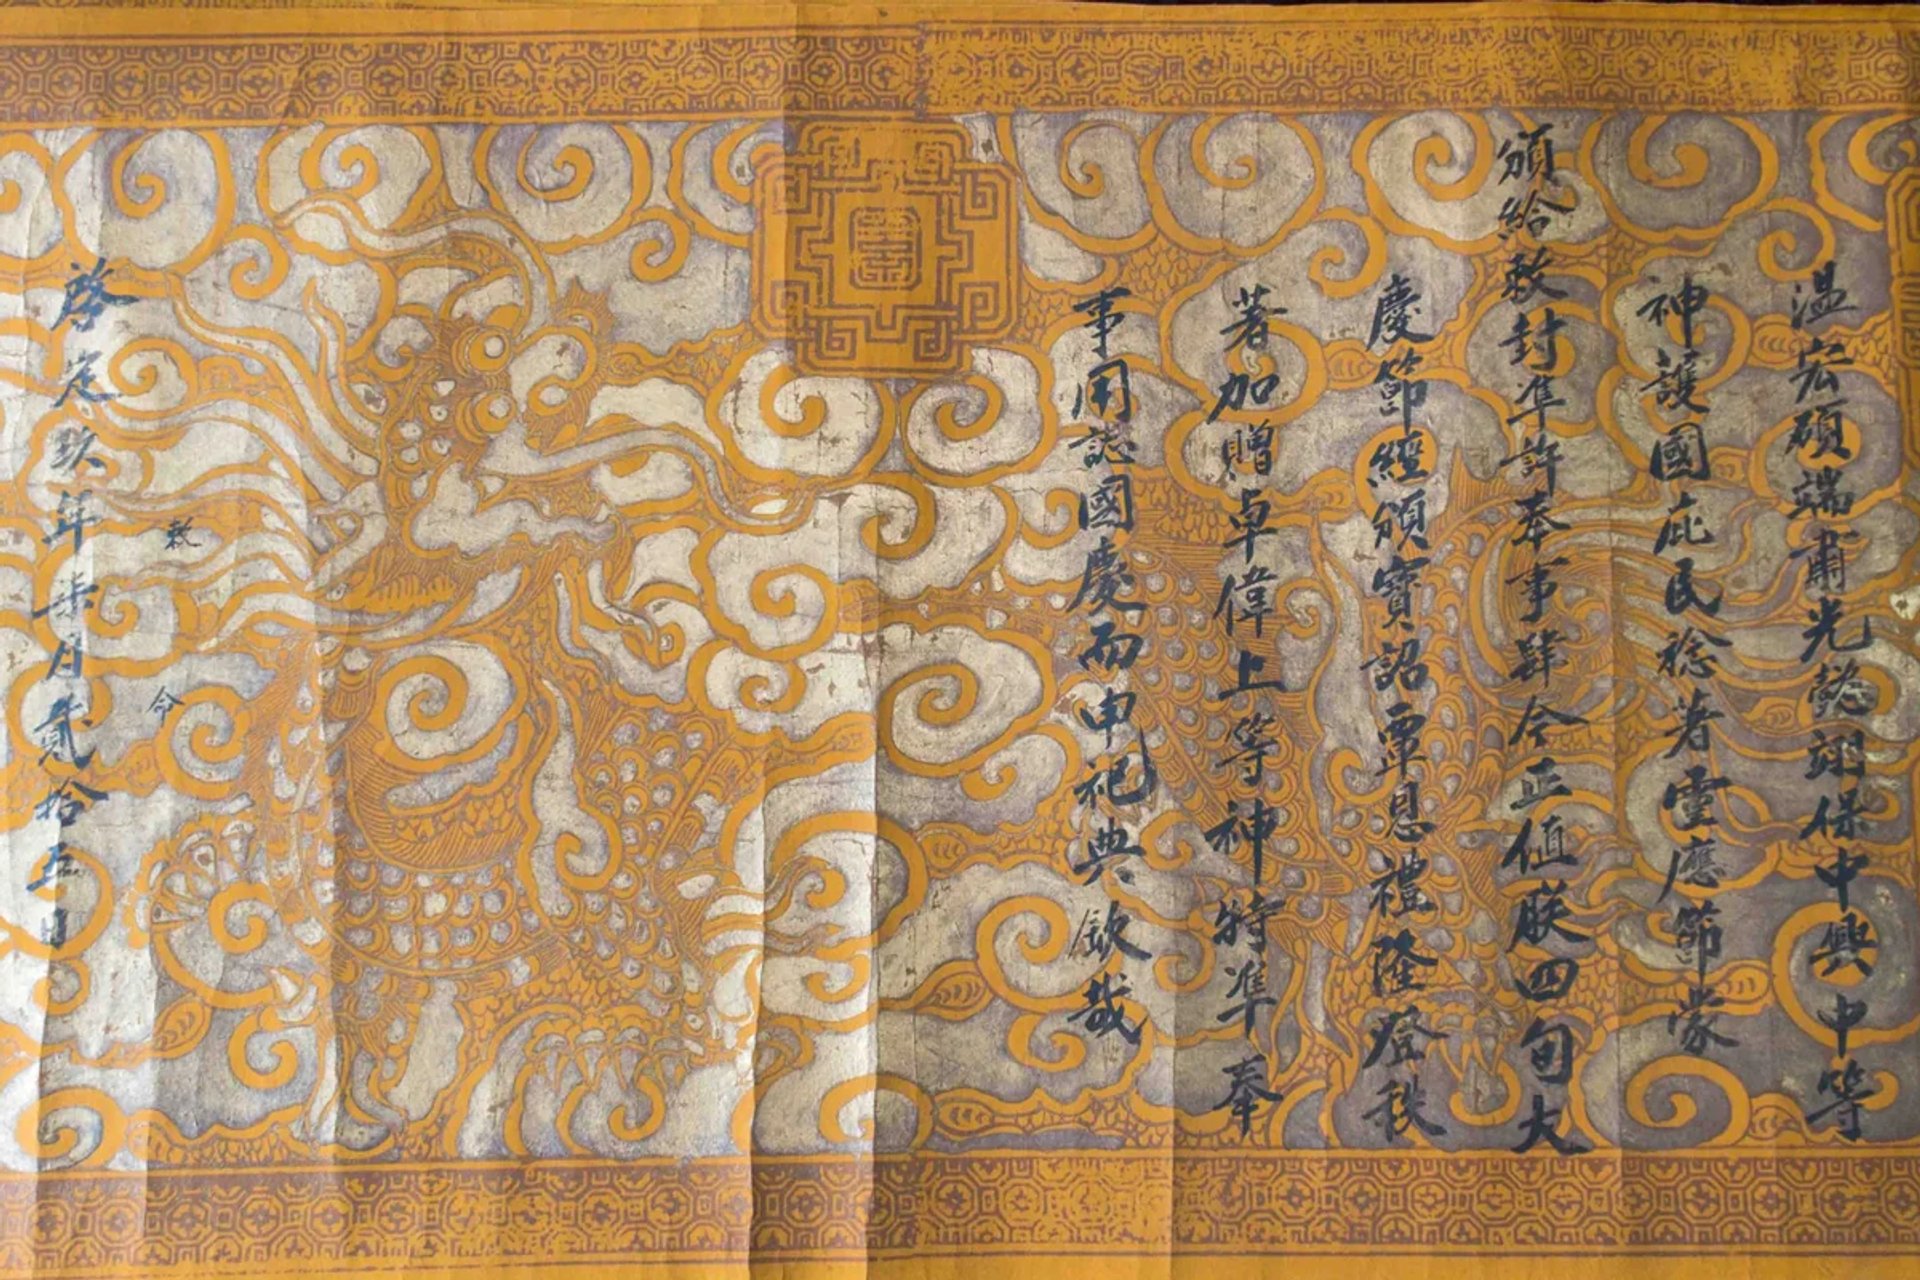 温宏碩端肅光懿翊保中興中等
神護國庇民稔著靈應節蒙
頒給敕封準許奉事肆今正值朕四旬大
慶節經頒寶詔覃恩禮隆登秩
著加贈卓偉上等神特準奉
事用誌國慶而申祀典欽哉
敕命
啓定玖年柒月貳拾五日